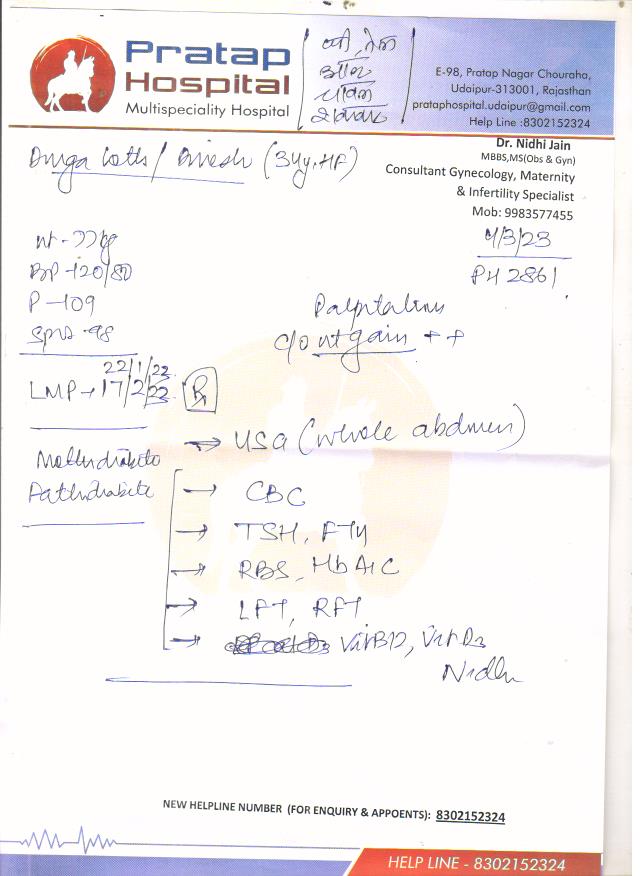 Pratap
Hospital
Multispeciality Hospital
घी, तेल
चावल
E-98, Pratap Nagar Chouraha,
Udaipur-313001, Rajasthan
prataphospital.udaipur@gmail.com
Help Line :8302152324
Dr. Nidhi Jain
MBBS,MS(Obs & Gyn)
Consultant Gynecology, Maternity
& Infertility Specialist
Mob: 9983577455
Durga / Dinesh (34y. HF)
4/3/23
PH 2861
wt - 77kg
BP - 120/80
P - 109
SpO2 - 98
Palpitations
c/o wt gain ++
22/1/22
LMP → 17/2/22
Rx
→ USG (whole abdomen)
→ CBC
→ TSH, FT4
→ RBS, HbA1C
→ LFT, RFT
→ Vit B12, Vit D3
Nidhi
NEW HELPLINE NUMBER (FOR ENQUIRY & APPOENTS): 8302152324
HELP LINE - 8302152324